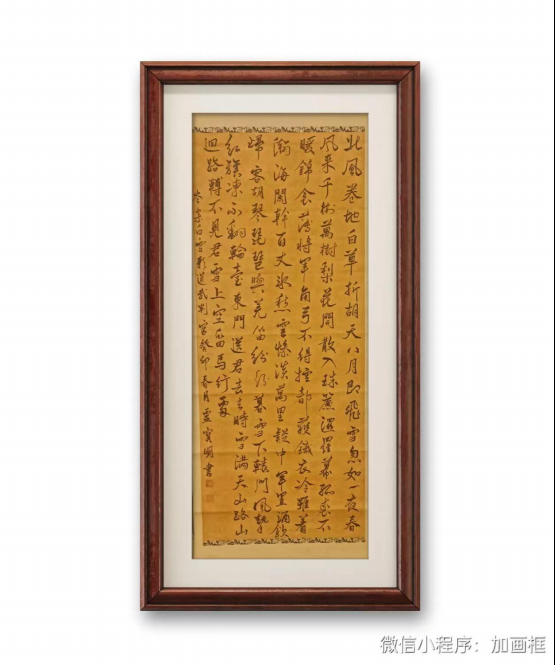 北風卷地白草折胡天八月即飛雪忽如一夜春
風来千樹萬樹梨花開散入珠簾濕羅幕狐裘不
暖錦衾薄將軍角弓不得控都護鐵衣冷難着
瀚海闌幹百丈冰愁雲慘淡萬里凝中軍置酒飲
歸客胡琴琵琶與羌笛紛紛暮雪下轅門風掣
紅旗凍不翻輪臺東門送君去去時雪滿天山路山
迴路轉不見君雪上空留馬行處
岑參白雪歌送武判官癸卯春月寶明書
微信小程序：加画框